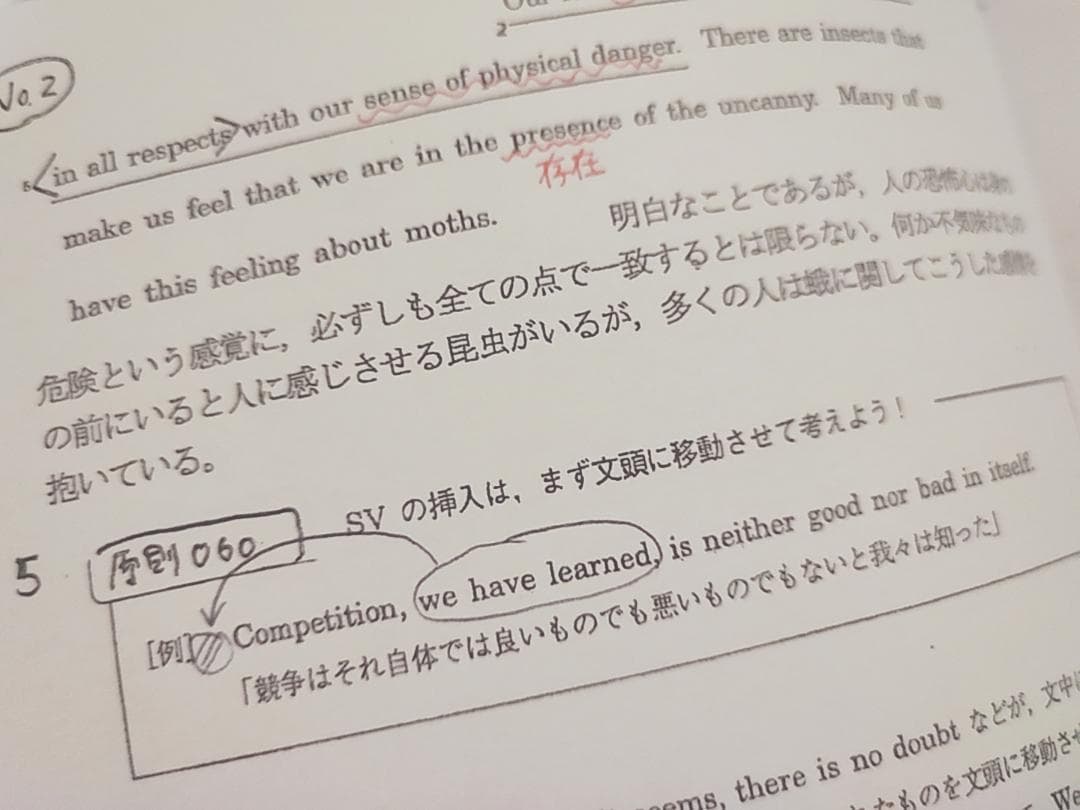 Our
2
No.2
5 in all respects with our sense of physical danger. There are insects that
make us feel that we are in the presence of the uncanny. Many of us
存在
have this feeling about moths.
明白なことであるが，人の恐怖心は
危険という感覚に，必ずしも全ての点で一致するとは限らない。何か不気味なもの
の前にいると人に感じさせる昆虫がいるが，多くの人は蛾に関してこうした感情を
抱いている。
SV の挿入は，まず文頭に移動させて考えよう！
5 原則 060
[例] Competition, we have learned, is neither good nor bad in itself.
「競争はそれ自体では良いものでも悪いものでもないと我々は知った」
seems, there is no doubt などが，文中に
なものを文頭に移動させ
We